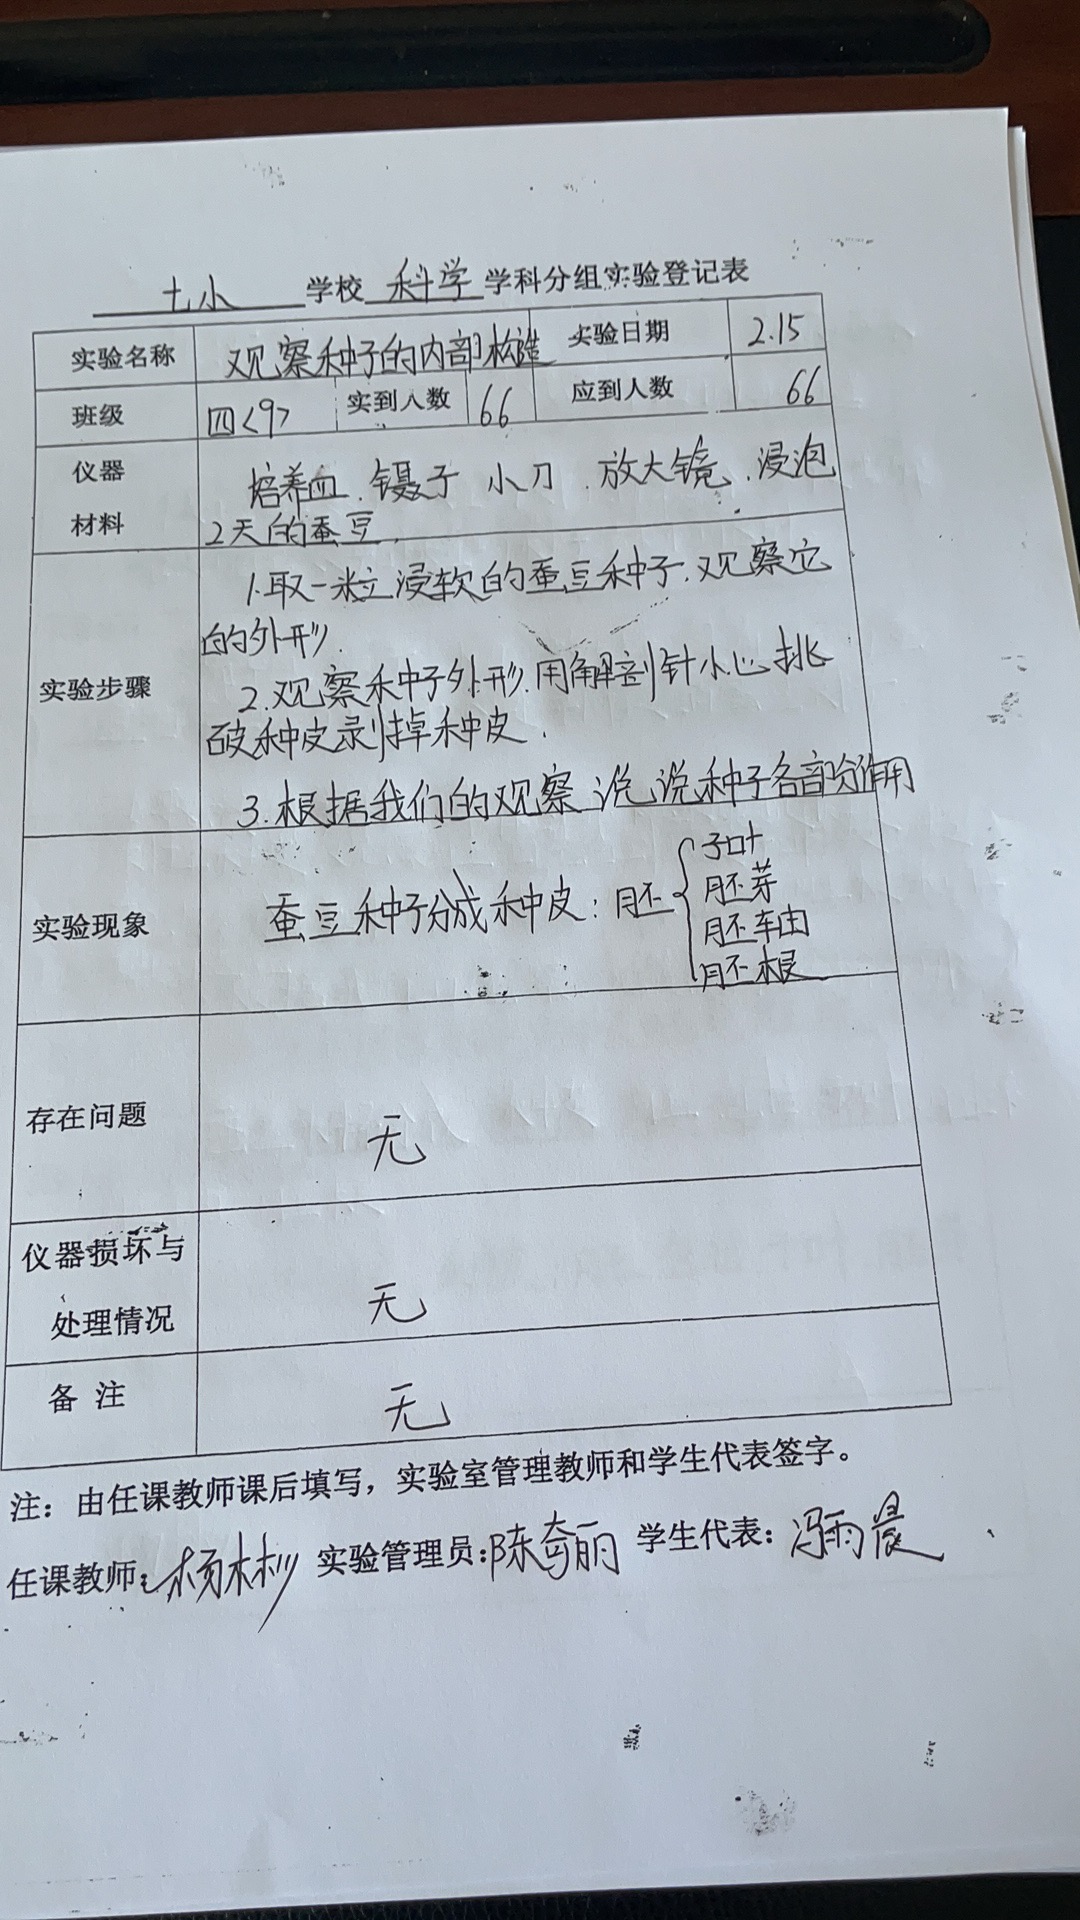 七小 学校 科学 学科分组实验登记表
实验名称 观察种子的内部构造 实验日期 2.15
班级 四<9> 实到人数 66 应到人数 66
仪器
材料
培养皿、镊子 小刀、放大镜、浸泡
2天的蚕豆.
实验步骤
1.取一粒浸软的蚕豆种子.观察它
的外形.
2.观察种子外形.用解剖针小心挑
破种皮剥掉种皮.
3.根据我们的观察 说说种子各部分作用
实验现象
蚕豆种子分成种皮:胚
子叶
胚芽
胚轴
胚根
存在问题 无
仪器损坏与
处理情况
无
备 注 无
注：由任课教师课后填写，实验室管理教师和学生代表签字。
任课教师: 杨 实验管理员: 陈 丽 学生代表: 冯雨晨